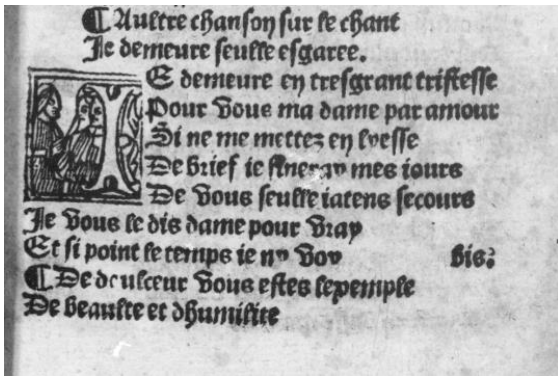 ¶ Aultre chanson sur le chant
Je demeure seulle esgaree.
JE demeure en tresgrant tristesse
Pour vous ma dame par amour
Si ne me mettez en lyesse
De brief ie fineray mes iours
De vous seulle iatens secours
Je vous le dis dame pour vray
Et si point le temps ie ny voy bis?
¶ De doulceur vous estes lexemple
De beaulte et dhumilite